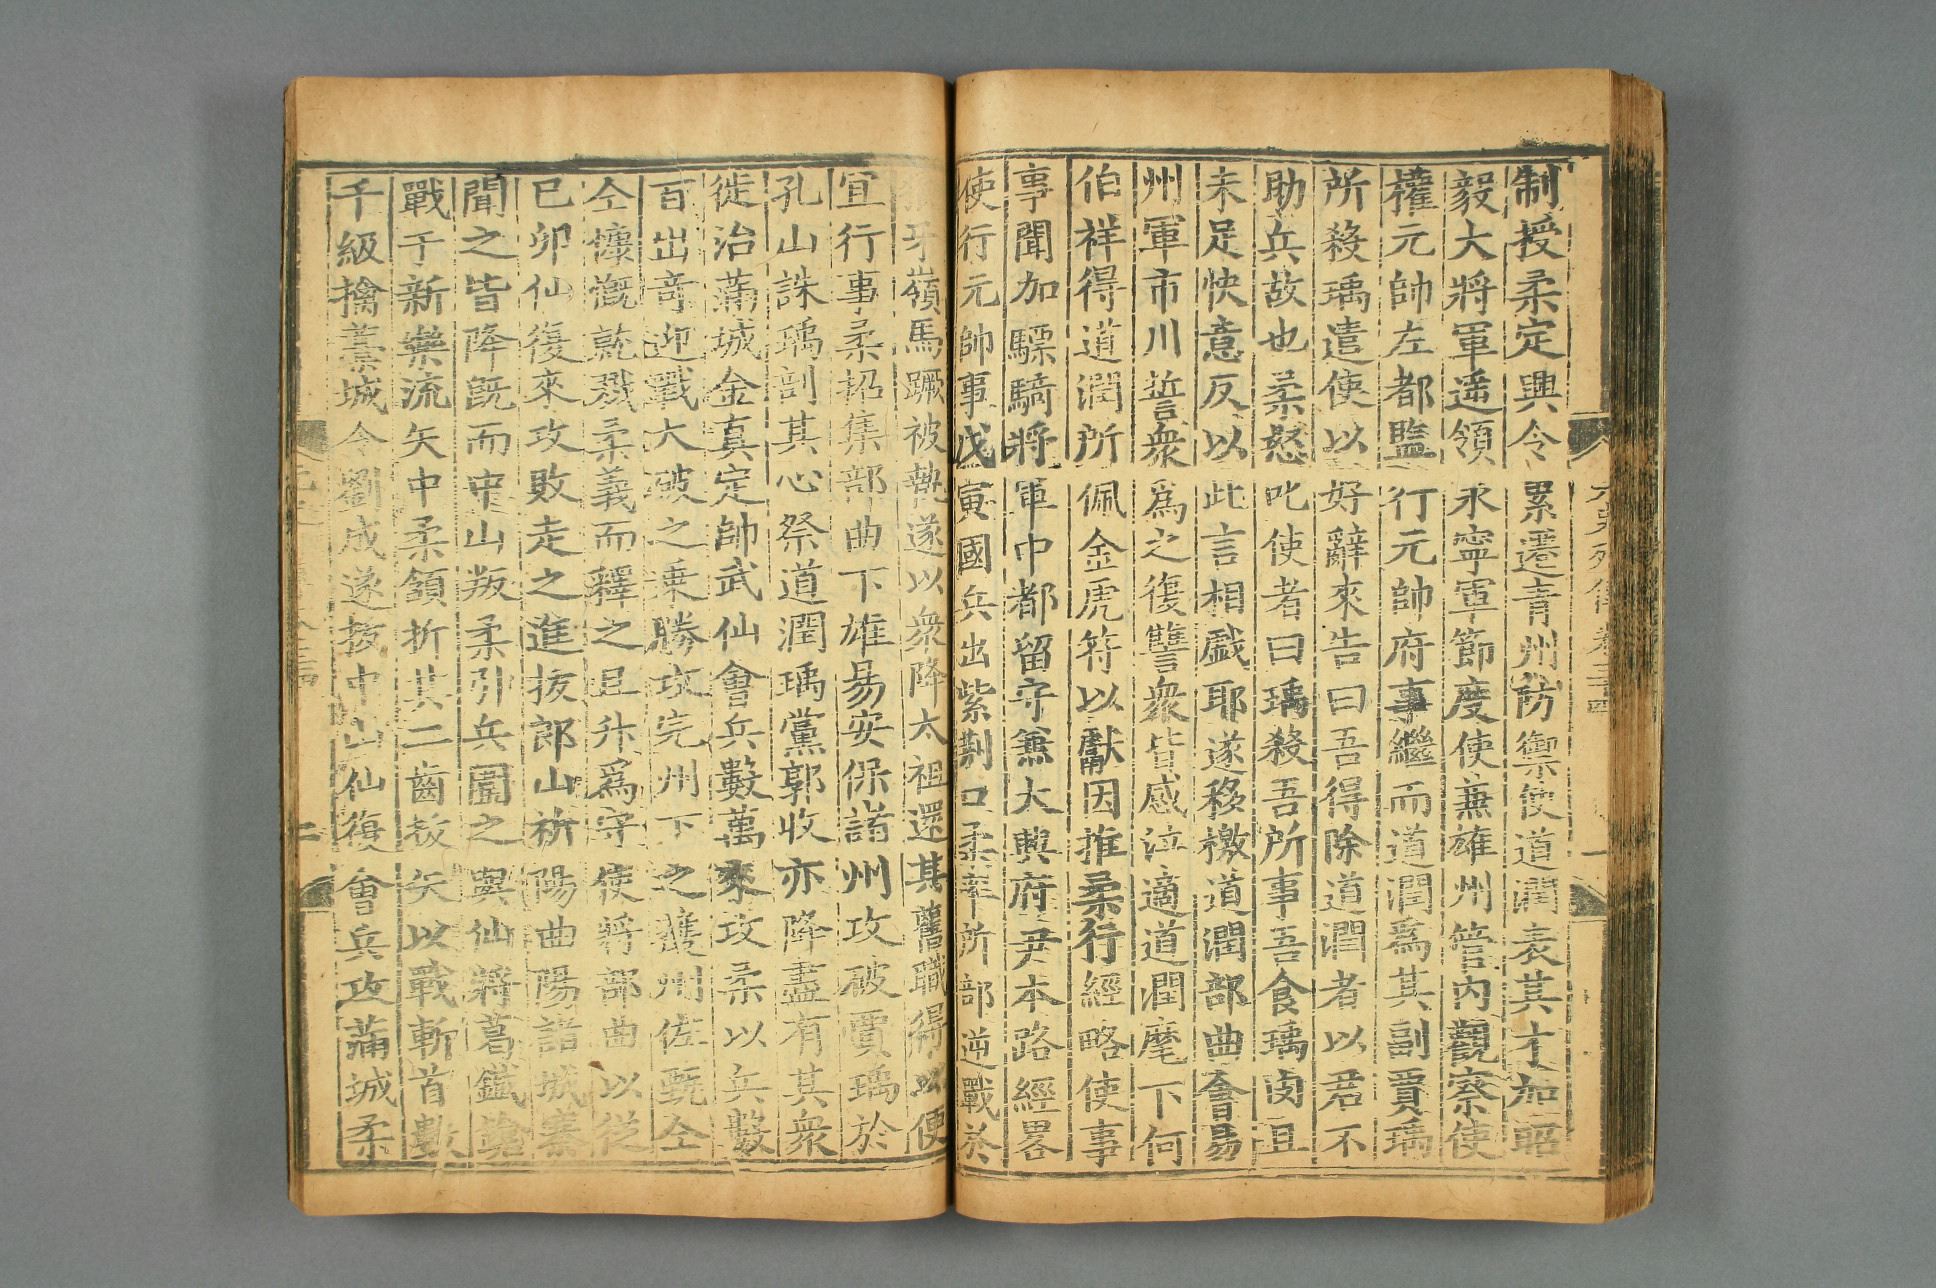 制授柔定興令累遷青州防禦使道潤表其才加昭
毅大將軍遥領永寧軍節度使蕪雄州管内觀察使
權元帥左都監行元帥府事繼而道潤爲其副賈瑀
所殺瑀遣使以好辭來告曰吾得除道潤者以君不
助兵故也柔怒叱使者曰瑀殺吾所事吾食瑀肉且
未足快意反以此言相戯耶遂移檄道潤部曲會易
州軍市川誓衆爲之復讐衆皆感泣適道潤麾下何
伯祥得道潤所佩金虎符以獻因推柔行經略使事
事聞加驃騎將軍中都留守兼大興府尹本路經畧
使行元帥事戊寅國兵出紫荆口柔率所部逆戰於
狼牙嶺馬蹶被執遂以衆降太祖還其舊職得以便
宜行事柔招集部曲下雄易安保諸州攻破賈瑀於
孔山誅瑀剖其心祭道潤瑀黨郭收亦降盡有其衆
徙治蒲城金真定帥武仙會兵數萬來攻柔以兵數
百出竒迎戰大破之乗勝攻完州下之獲州佐甄仝
仝慷慨就戮柔義而釋之且升爲守使將部曲以從
已卯仙復來攻敗走之進拔郎山祈陽曲陽諸城寨
聞之皆降既而中山叛柔引兵圍之與仙將葛鐵鎗
戰于新樂流矢中柔頷折其二齒拔矢以戰斬首數
千級擒藁城令劉成遂拔中山仙復會兵攻蒲城柔